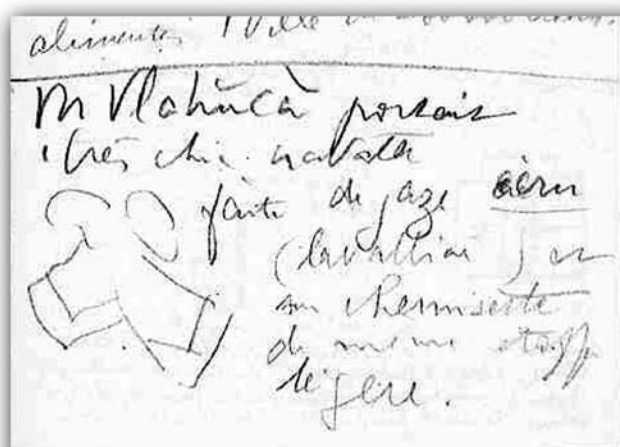 alimentes Ville
M Vlahuca portait
très chic cravate
faite de gaze écru
(lavallière) et
une chemisette
de même étoffe
légère.